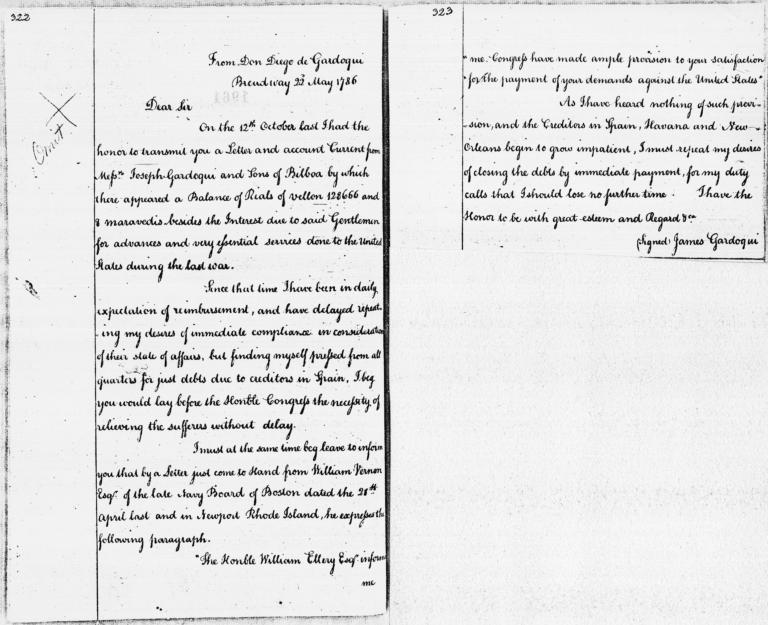 322
From Don Diego de Gardoqui
Broadway 22d May 1786
Omit
Dear Sir
On the 12th October last I had the
honor to transmit you a Letter and account Current from
Messrs Joseph Gardoqui and Sons of Bilboa by which
there appeared a Balance of Rials of vellon 128666 and
8 maravedis besides the Interest due to said Gentlemen
for advances and very essential services done to the United
States during the last war.
Since that time I have been in daily
expectation of reimbursement, and have delayed repeat-
-ing my desires of immediate compliance in consideration
of their state of affairs, but finding myself pressed from all
quarters for just debts due to creditors in Spain, I beg
you would lay before the Honble Congress the necessity of
relieving the sufferers without delay.
I must at the same time beg leave to inform
you that by a Letter just come to Hand from William Vernon
Esqr. of the late Navy Board of Boston dated the 28th
April last and in Newport Rhode Island, he expresses the
following paragraph.
"The Honble William Ellery Esqr. informs
me
323
"me. Congress have made ample provision to your satisfaction
"for the payment of your demands against the United States"
As I have heard nothing of such provi-
-sion, and the Creditors in Spain, Havana and New
Orleans begin to grow impatient, I must repeat my desires
of closing the debts by immediate payment, for my duty
calls that I should lose no further time. I have the
Honor to be with great esteem and Regard &ca
(Signed) James Gardoqui